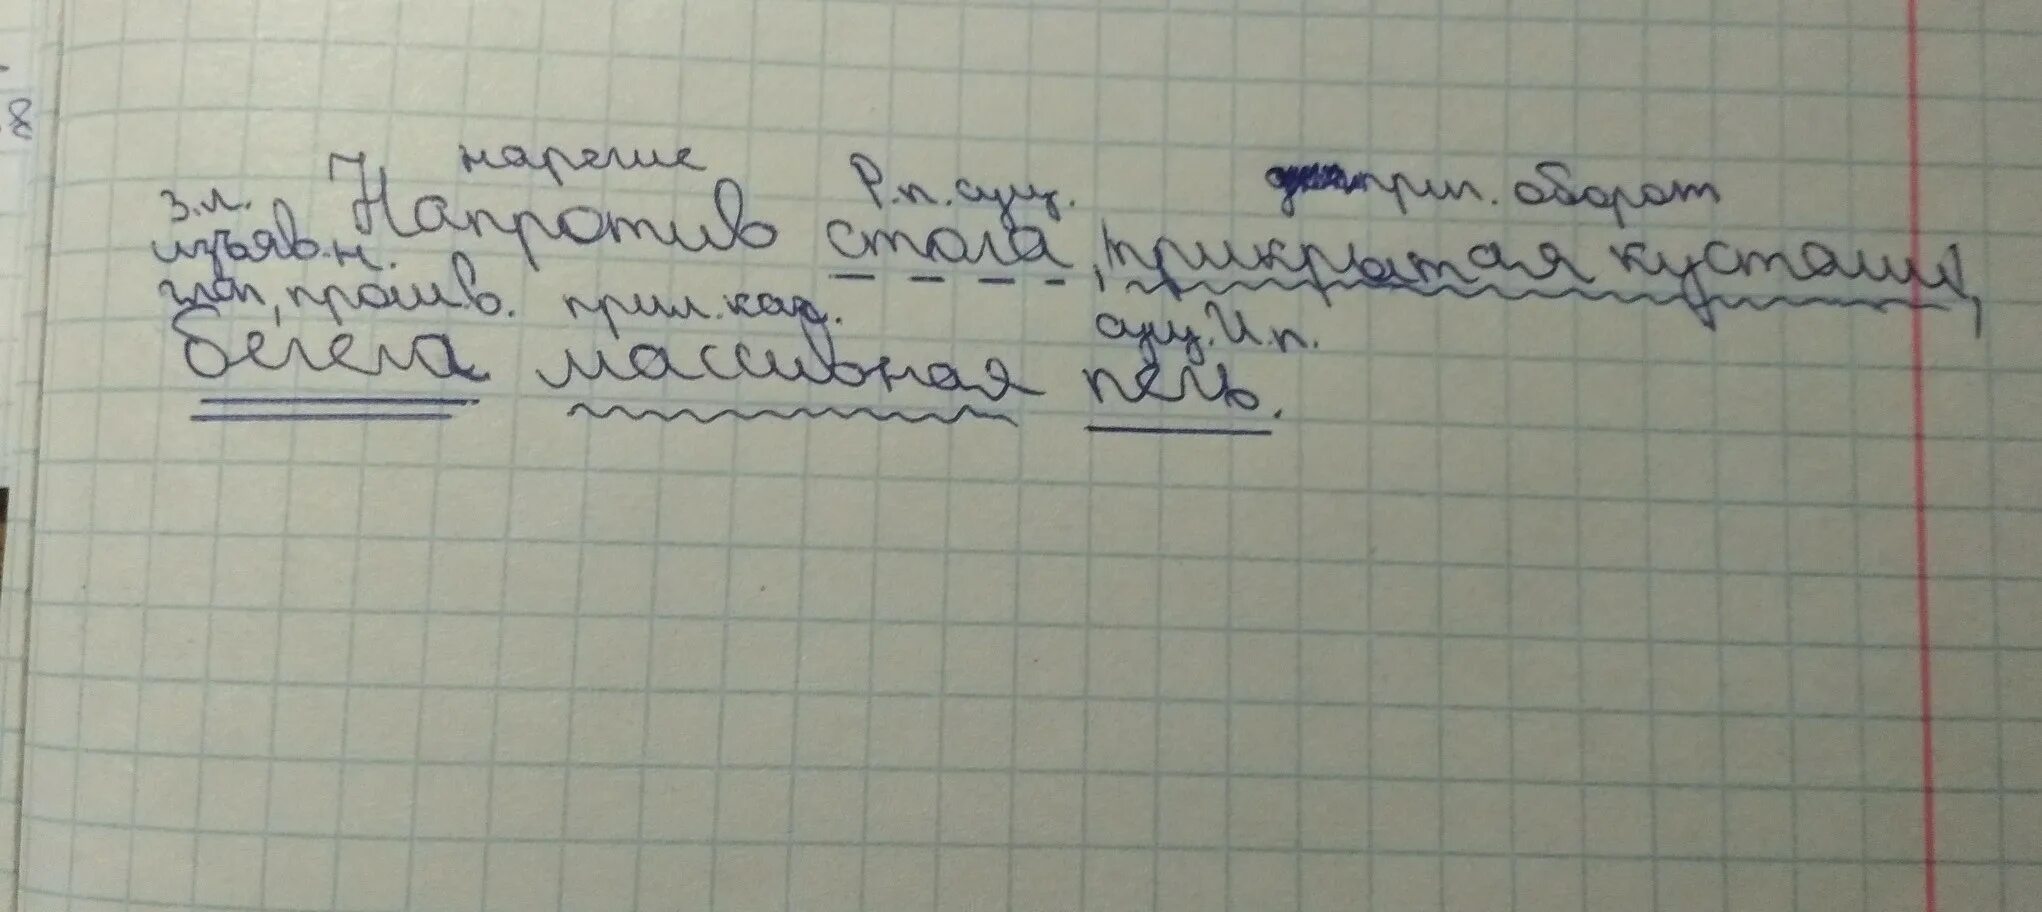 8
наречие Р.п. сущ. прич. оборот
3.л. Напротив стола, прикрытая кустами,
изъяв.н.
глаг, прош.в. прил. кач. сущ. И.п.
белела массивная печь.